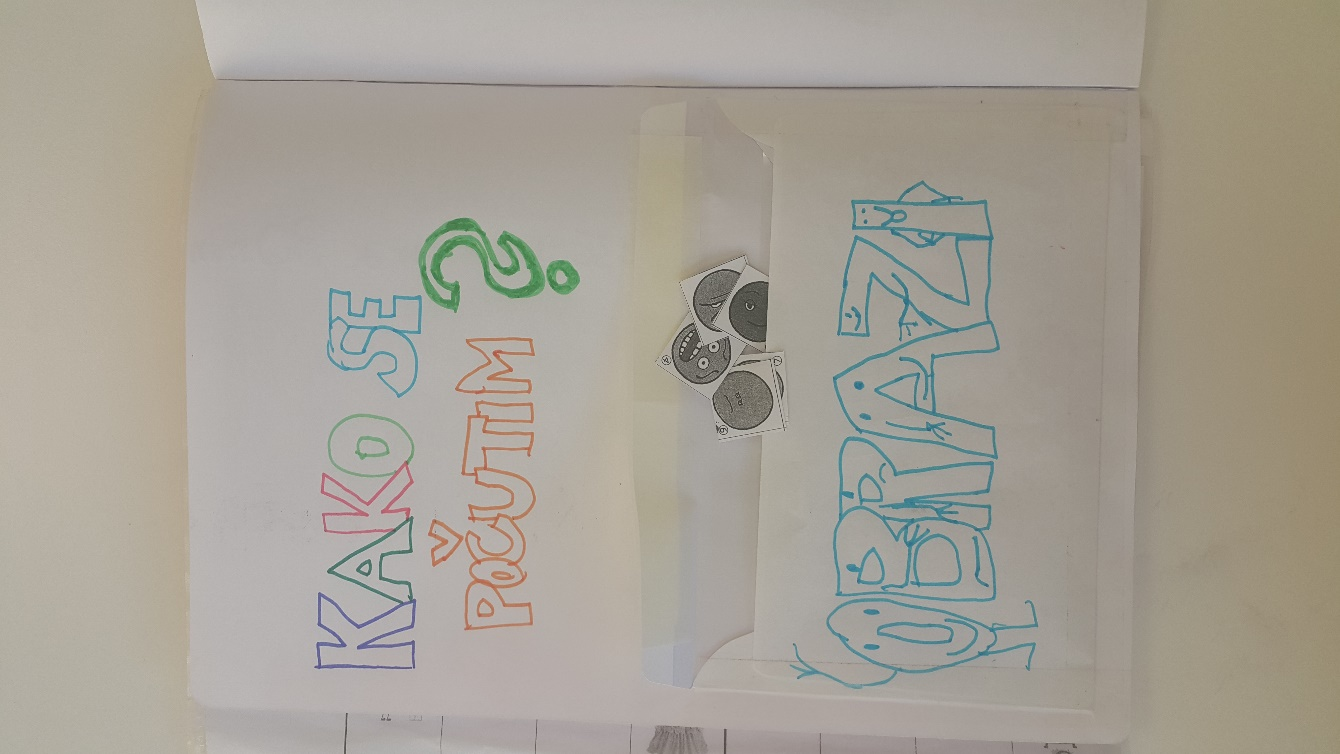 KAKO SE
POČUTIM ?
OBRAZI